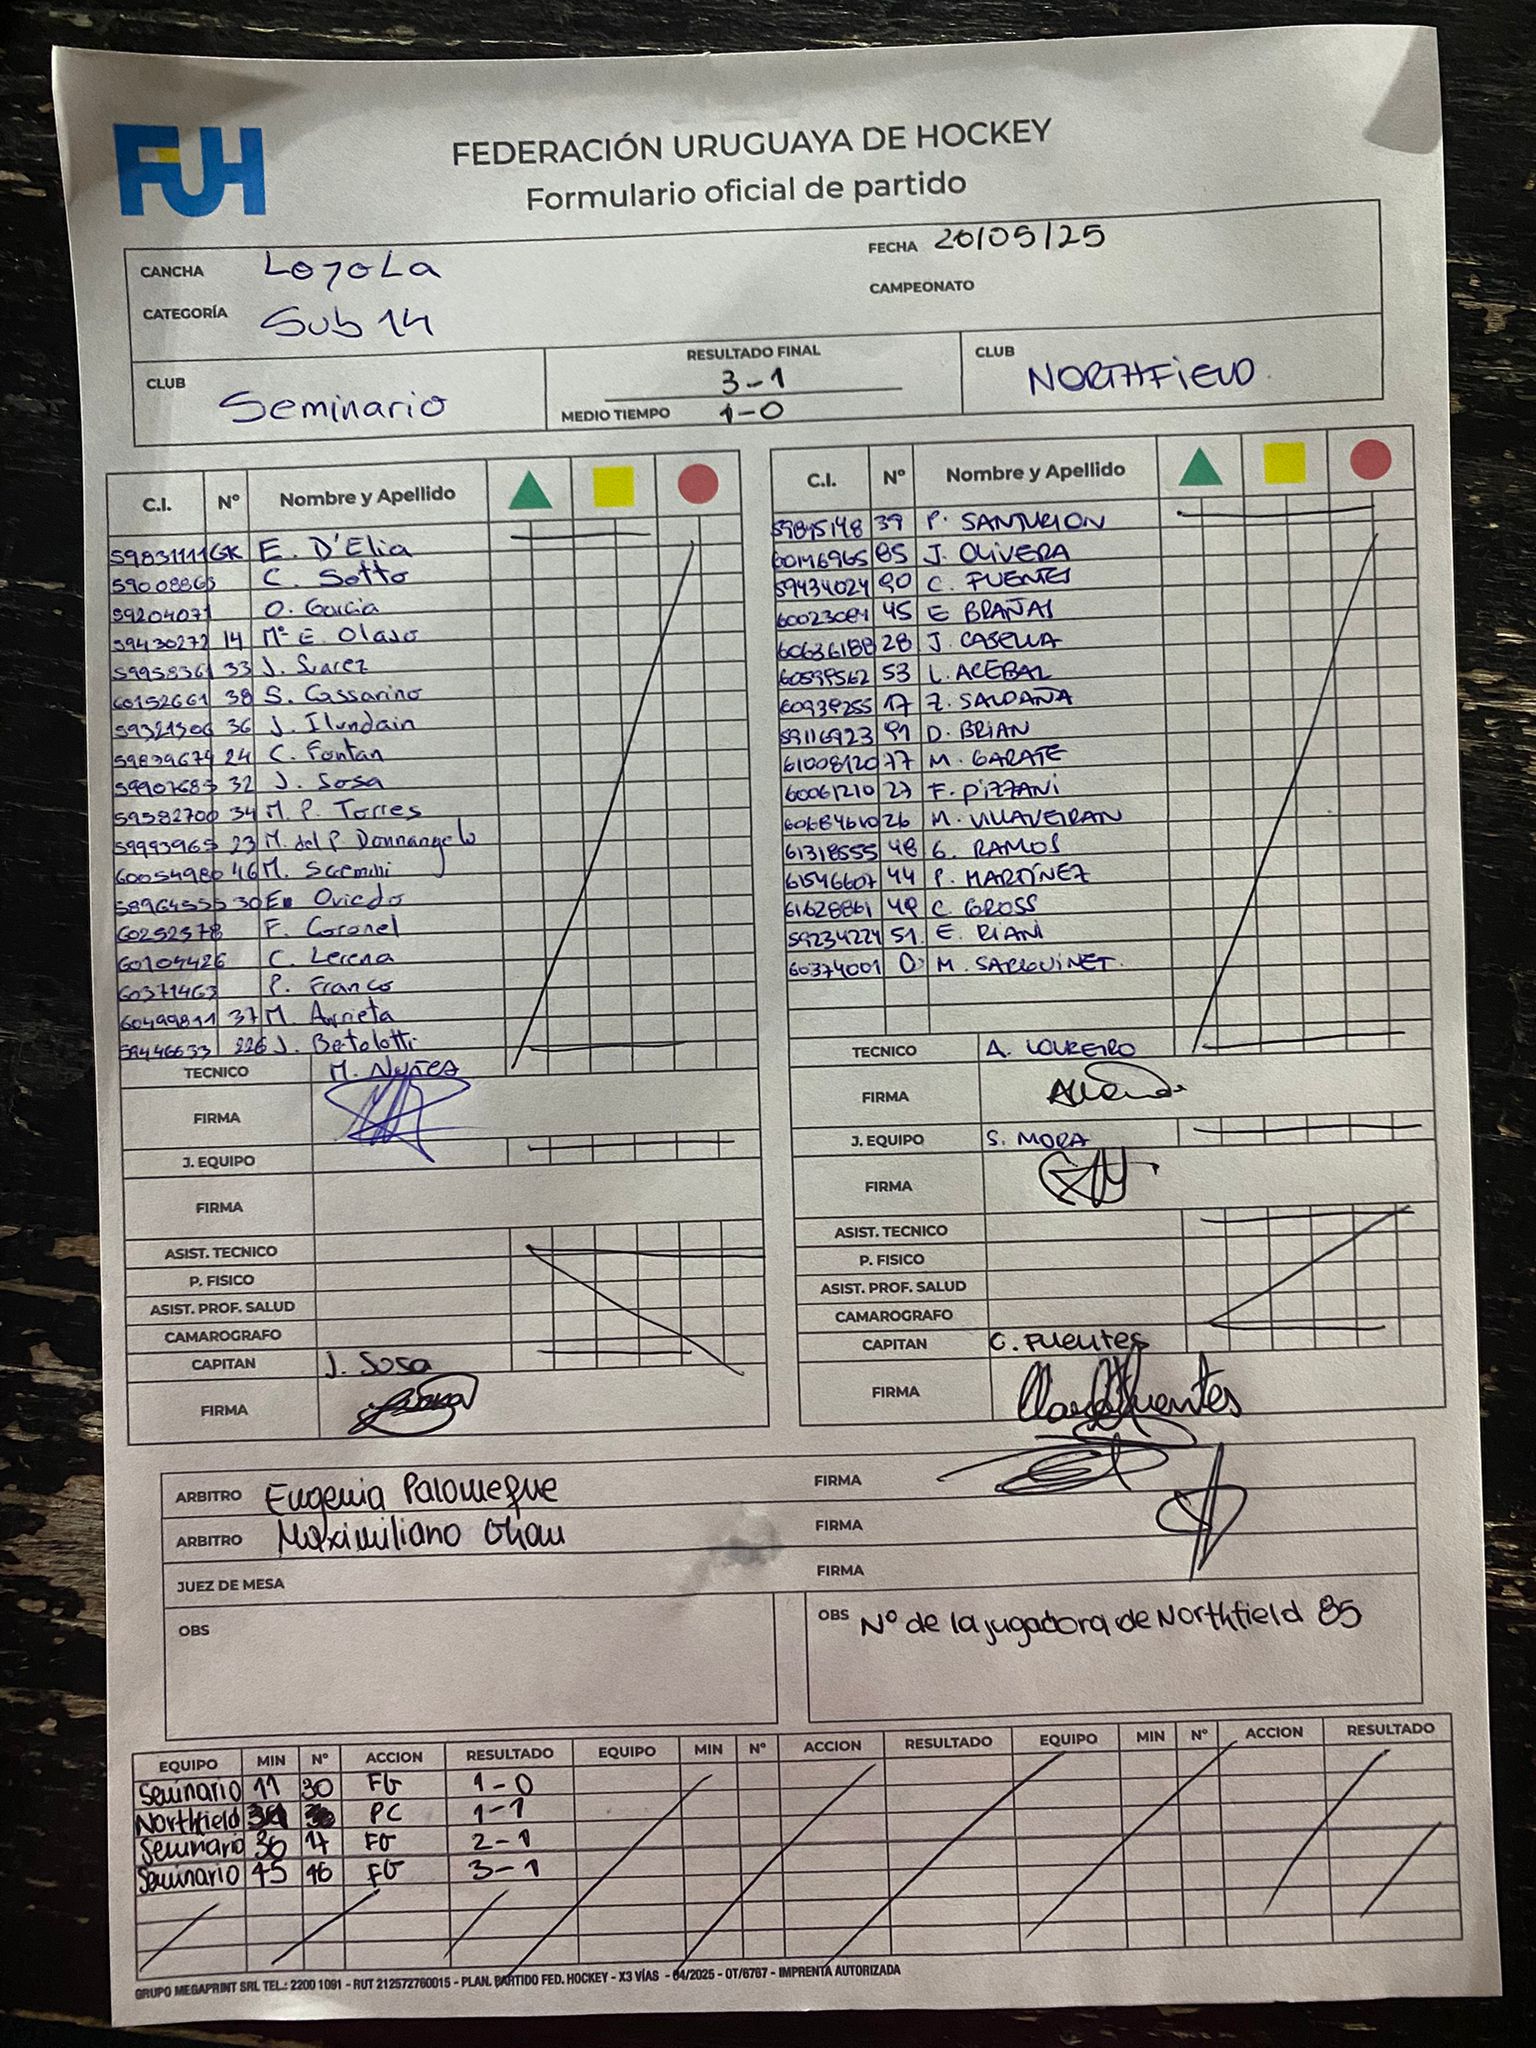 FUH
FEDERACIÓN URUGUAYA DE HOCKEY
Formulario oficial de partido
CANCHA Loyola
FECHA 20/05/25
CATEGORÍA Sub 14
CAMPEONATO
CLUB Seminario
RESULTADO FINAL 3-1
MEDIO TIEMPO 1-0
CLUB NORTHFIELD
C.I. Nº Nombre y Apellido
59831111 GK E. D'Elia
59008865 C. Sotto
59204071 O. Garcia
59430272 14 Mª E. Olaso
59958361 33 J. Suarez
60152661 38 S. Cassarino
59321306 36 J. Ilundain
59839679 24 C. Fontan
59907685 32 J. Sosa
59582700 34 M. P. Torres
59993965 23 M. del P. Donnangelo
60054980 46 M.
58964555 30 E. Oviedo
60252578 F. Coronel
60104426 C. Lerena
60371463 P. Franco
60499811 37 M. Arrieta
59446633 226 J. Betolotti
TECNICO M. Nuñez
FIRMA
J. EQUIPO
FIRMA
ASIST. TECNICO
P. FISICO
ASIST. PROF. SALUD
CAMAROGRAFO
CAPITAN J. Sosa
FIRMA
C.I. Nº Nombre y Apellido
59895148 39 P. SANTURION
60146965 85 J. OLIVERA
59434024 90 C. FUENTES
60023084 45 E BRAÑAS
60636188 28 J. CASELLA
60595562 53 L. ACEBAL
60939255 17 Z. SALDAÑA
59116923 91 D. BRIAN
61008120 77 M. GARATE
60061210 27 F. PIZZANI
60684610 26 M. VILLAVEIRAN
61318555 48 G. RAMOS
61546607 44 P. MARTÍNEZ
61628861 49 C. GROSS
59234224 51 E. RIANI
60374001 0 M. SARQUINET.
TECNICO A. LOUREIRO
FIRMA
J. EQUIPO S. MORA
FIRMA
ASIST. TECNICO
P. FISICO
ASIST. PROF. SALUD
CAMAROGRAFO
CAPITAN C. Fuentes
FIRMA
ARBITRO Eugenia Palomeque FIRMA
ARBITRO Maximiliano FIRMA
JUEZ DE MESA FIRMA
OBS
OBS Nº de la jugadora de Northfield 85
EQUIPO MIN Nº ACCION RESULTADO EQUIPO MIN Nº ACCION RESULTADO EQUIPO MIN Nº ACCION RESULTADO
Seminario 11 30 FG 1-0
Northfield PC 1-1
Seminario 36 14 FG 2-1
Seminario 45 46 FG 3-1
GRUPO MEGAPRINT SRL TEL.: 2200 1091 - RUT 212572760015 - PLAN. PARTIDO FED. HOCKEY - X3 VÍAS - 04/2025 - OT/6767 - IMPRENTA AUTORIZADA